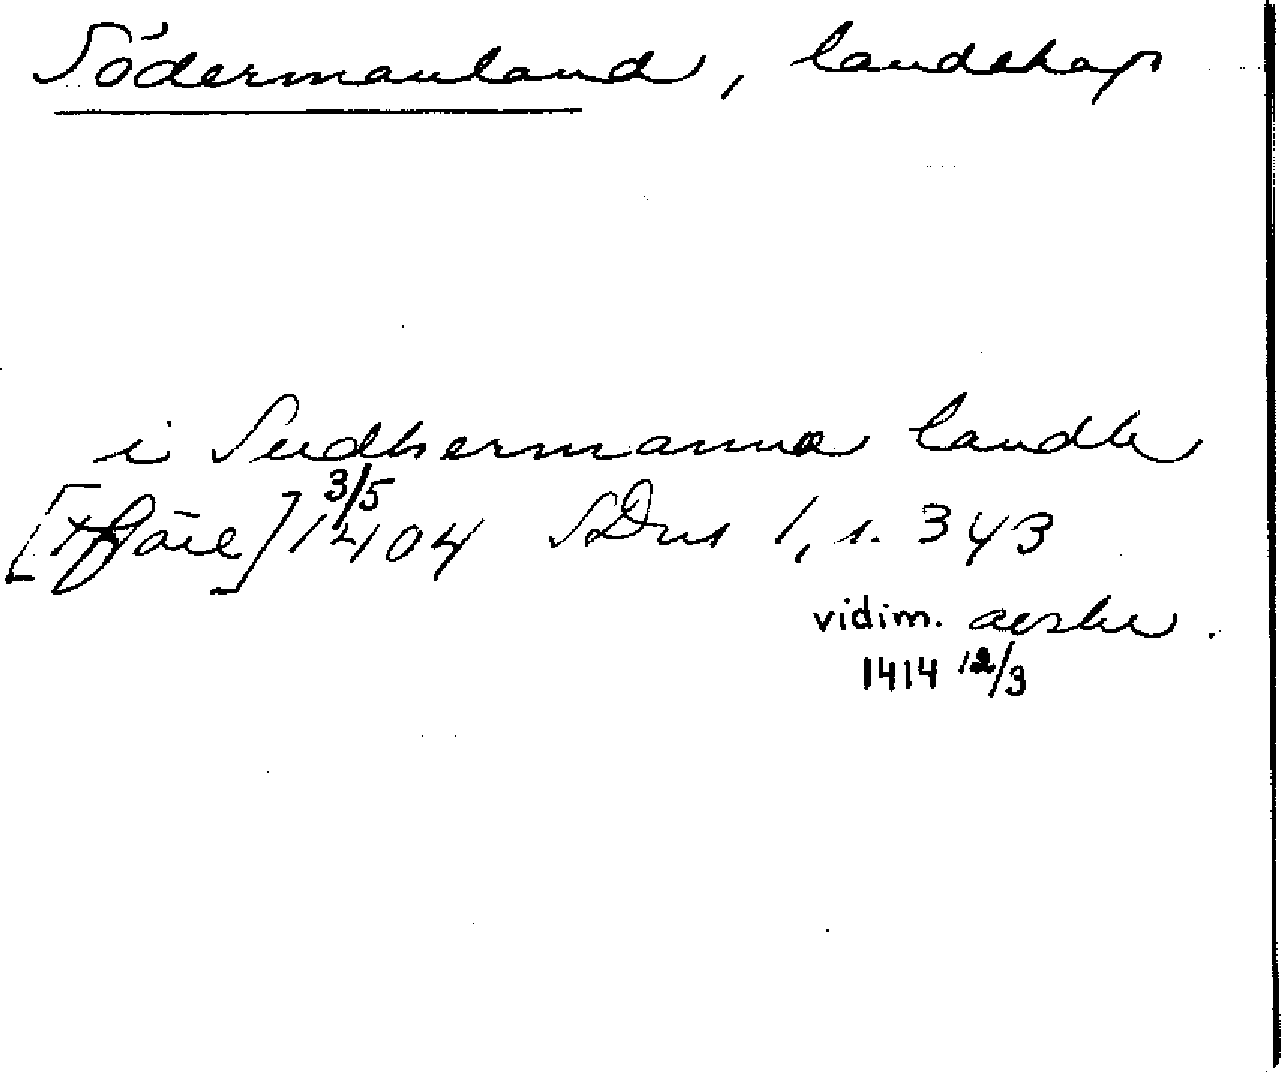 Södermanland, landskap
i Sudhermanna landh
3/5
1404 SDns 1, s. 343
vidim. avskr.
1414 12/3